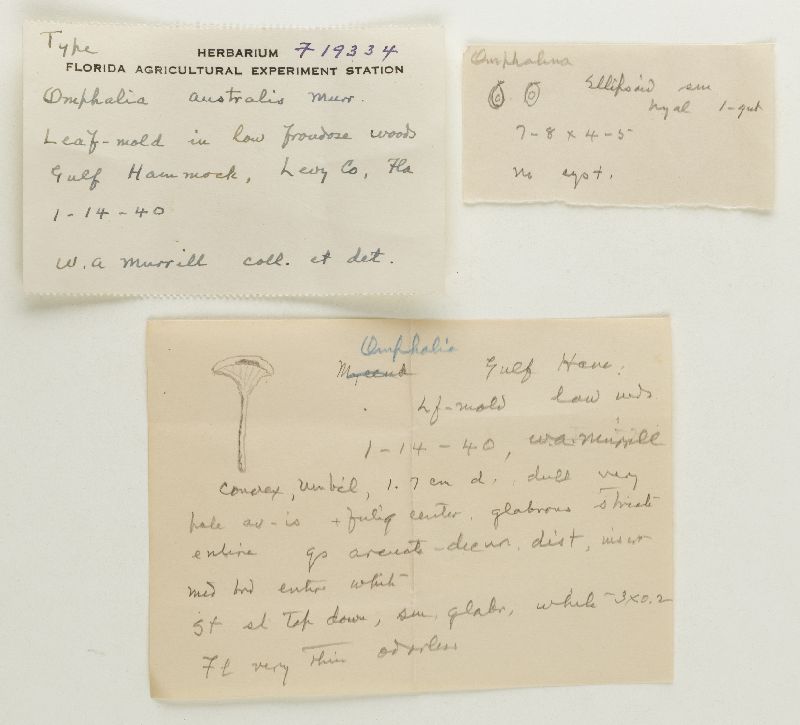 Type
HERBARIUM F19334
FLORIDA AGRICULTURAL EXPERIMENT STATION
Omphalia australis Murr.
Leaf-mold in low frondose woods
Gulf Hammock, Levy Co, Fla
1-14-40
W.A Murrill coll. et det.
Omphalina
Ellipsoid sm
hyal 1-gut
7-8 x 4-5
no cyst.
Omphalia
Gulf Ham.
Lf-mold low wds
1-14-40, W.A. Murrill
convex, umbil, 1.7 cm d., dull very
pale av-is + fulig center, glabrous striate
entire gs arcuate-decur, dist, inser
med brd entire white
st sl tap down, sm, glabr, white 3x0.2
Fl very thin odorless